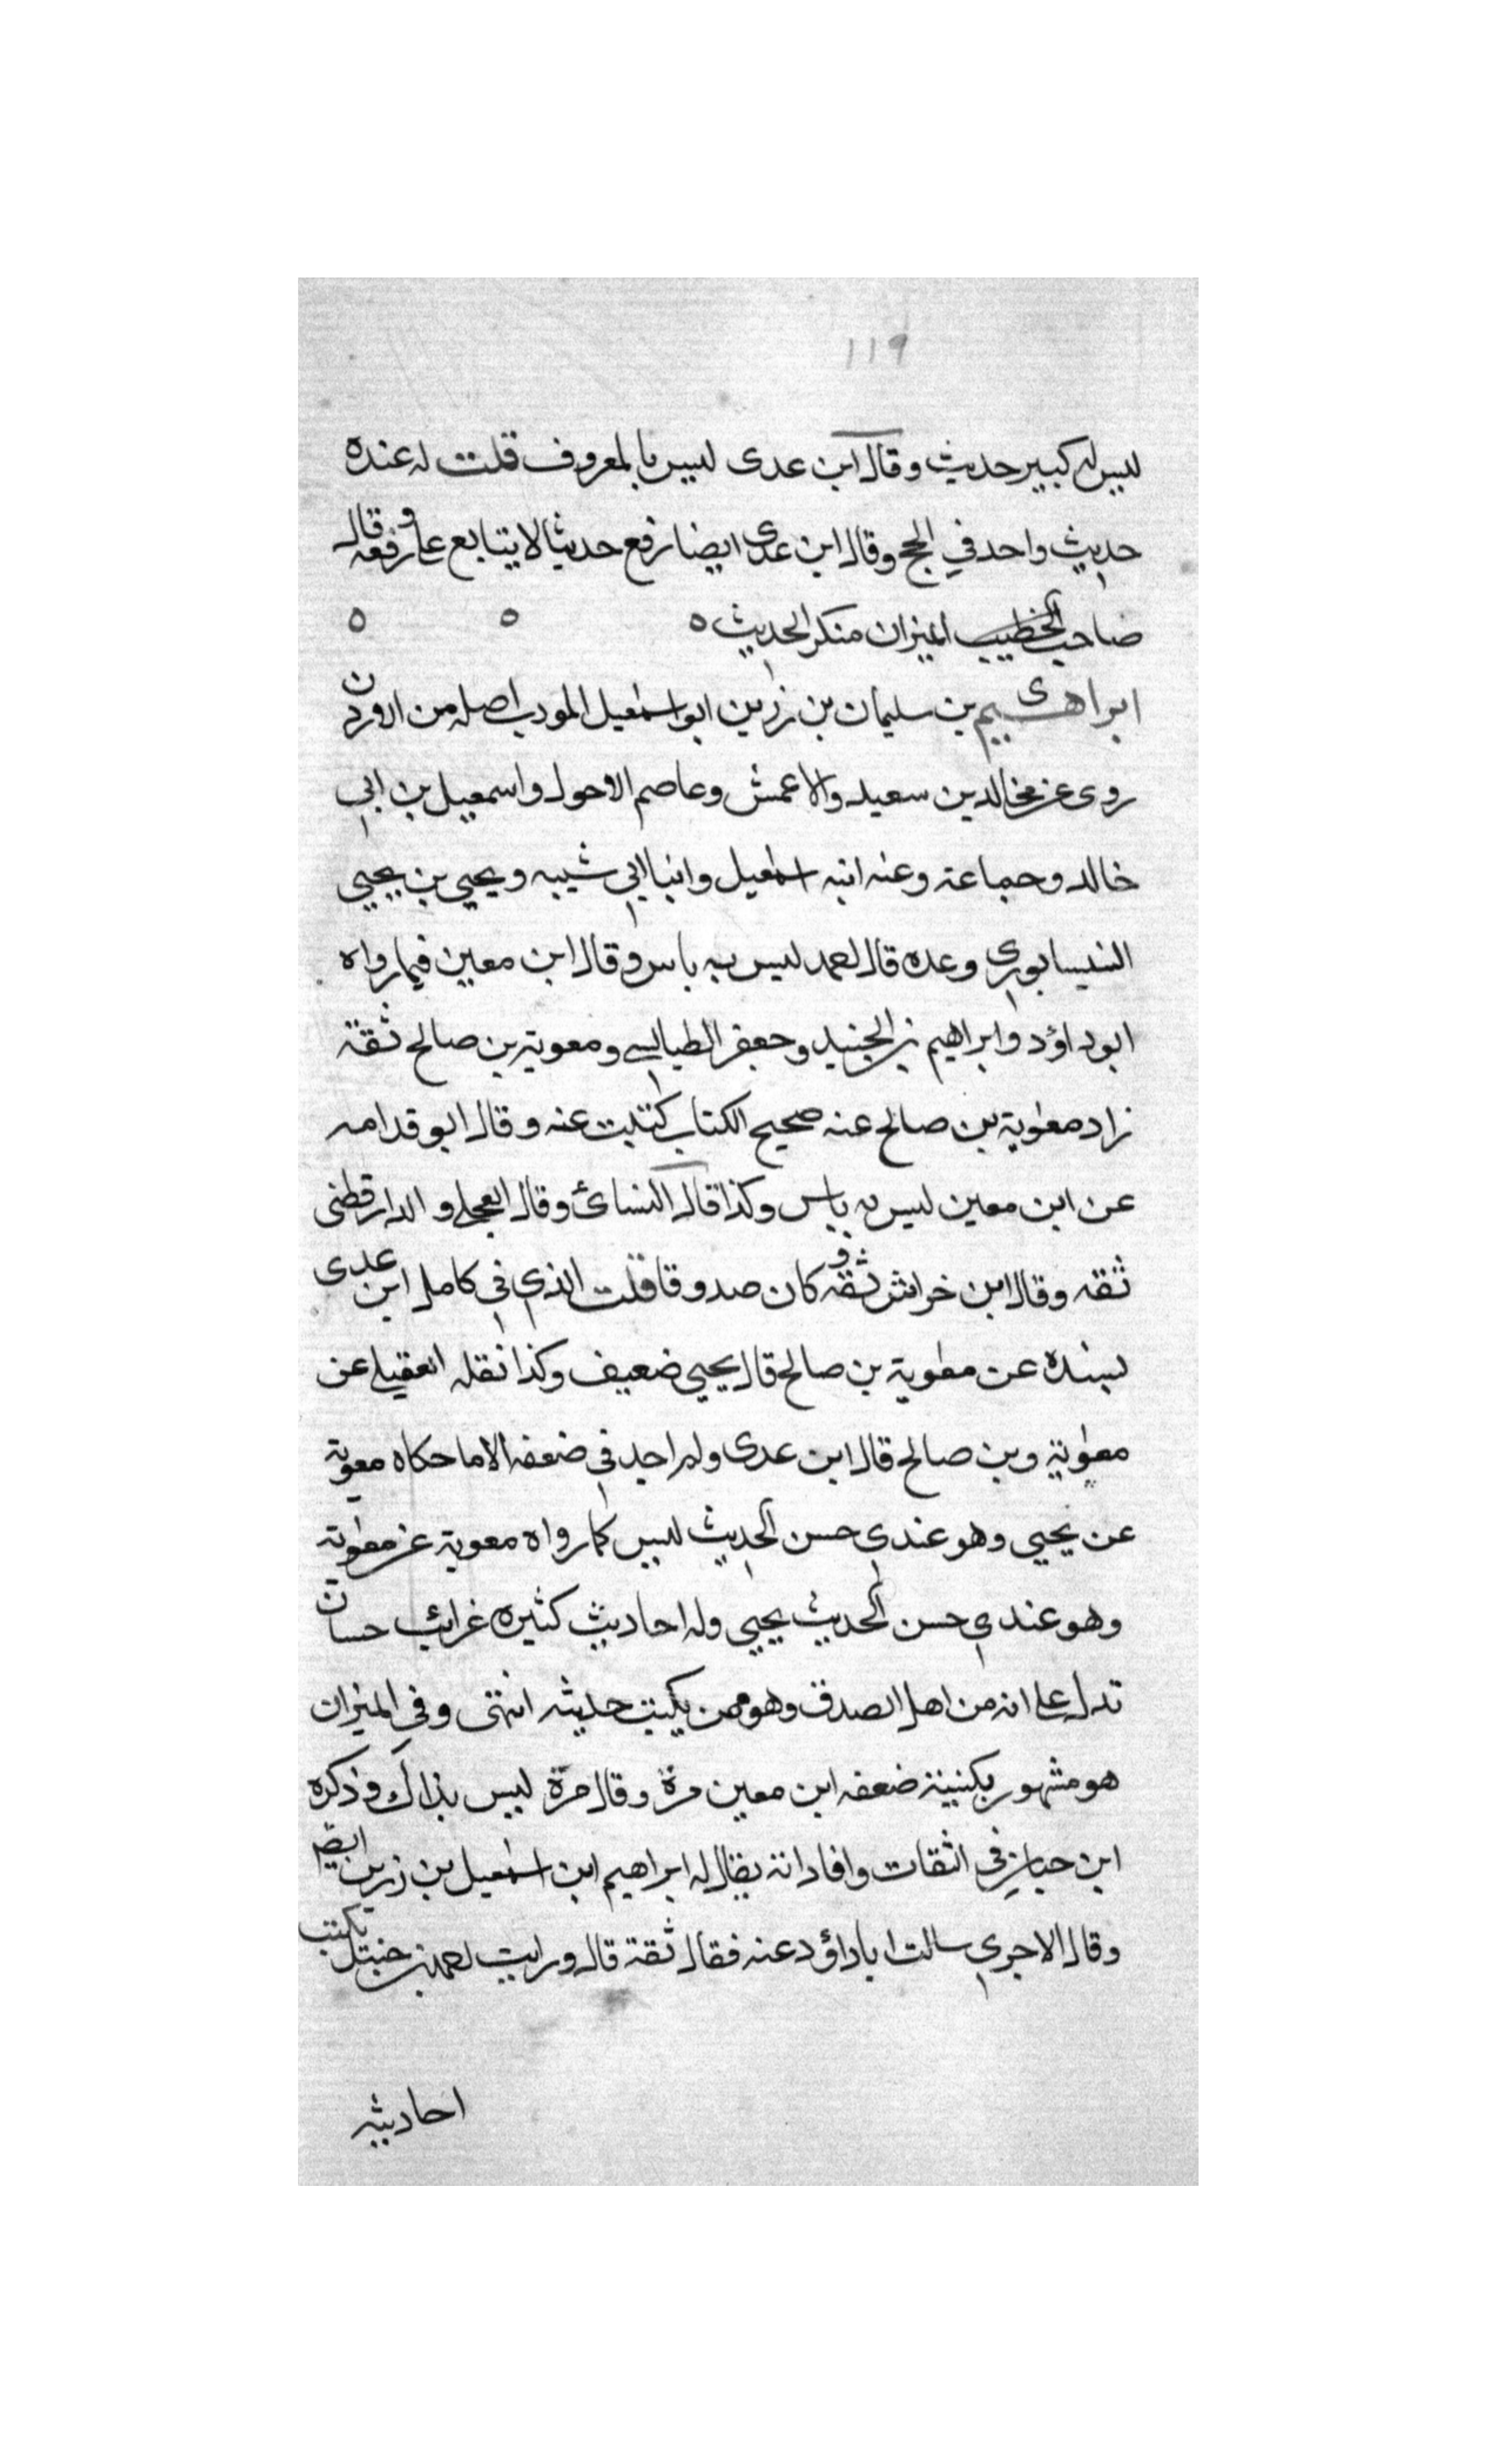 ١١٩
ليس له كبير حديث وقال ابن عدى ليس بالمعروف قلت له عنده
حديث واحد في الحج وقال ابن عدى ايضا رفع حديثا لا يتابع على رفعه وقال
صاحب الخطيب الميزان منكر الحديث ٥ ٥ ٥
ابراهيم بن سليمان بن رزين ابو اسمعيل المودب اصله من الاردن
روى عن مجالد بن سعيد والاعمش وعاصم الاحول واسمعيل بن ابي
خالد وجماعة وعنه ابنه اسمعيل وابنا ابي شيبه ويحيى بن يحيى
النيسابوري وعده قال احمد ليس به باس وقال ابن معين فيما رواه
ابو داؤد وابراهيم بن الجنيد وجعفر الطيالسي ومعوية بن صالح ثقة
زاد معوية بن صالح عنه صحيح الكتاب كتبت عنه وقال ابو قدامه
عن ابن معين ليس به باس وكذا قال النسائ وقال العجلي والدارقطنى
ثقه وقال ابن خراش ثقه و كان صدوقا قلت الذي في كامل ابن عدى
بسنده عن معوية بن صالح قال يحيى ضعيف وكذا نقله العقيلي عن
معوية وبن صالح قال ابن عدى ولم اجد في ضعفه الا ما حكاه معوية
عن يحيى وهو عندي حسن الحديث ليس كما رواه معوية عن معوية
وهو عندي حسن الحديث يحيى وله احاديث كثيره غرائب حسان
تدل على انه من اهل الصدق وهو ممن يكتب حديثه انتهى وفي الميزان
هو مشهور بكنيته ضعفه ابن معين مرة وقال مرة ليس بذاك وذكره
ابن حبان في الثقات وافاد انه يقال له ابراهيم ابن اسمعيل بن رزين ايضا
وقال الاجري سالت ابا داؤد عنه فقال ثقة قال ورايت احمد بن حنبل يكتب
احاديثه